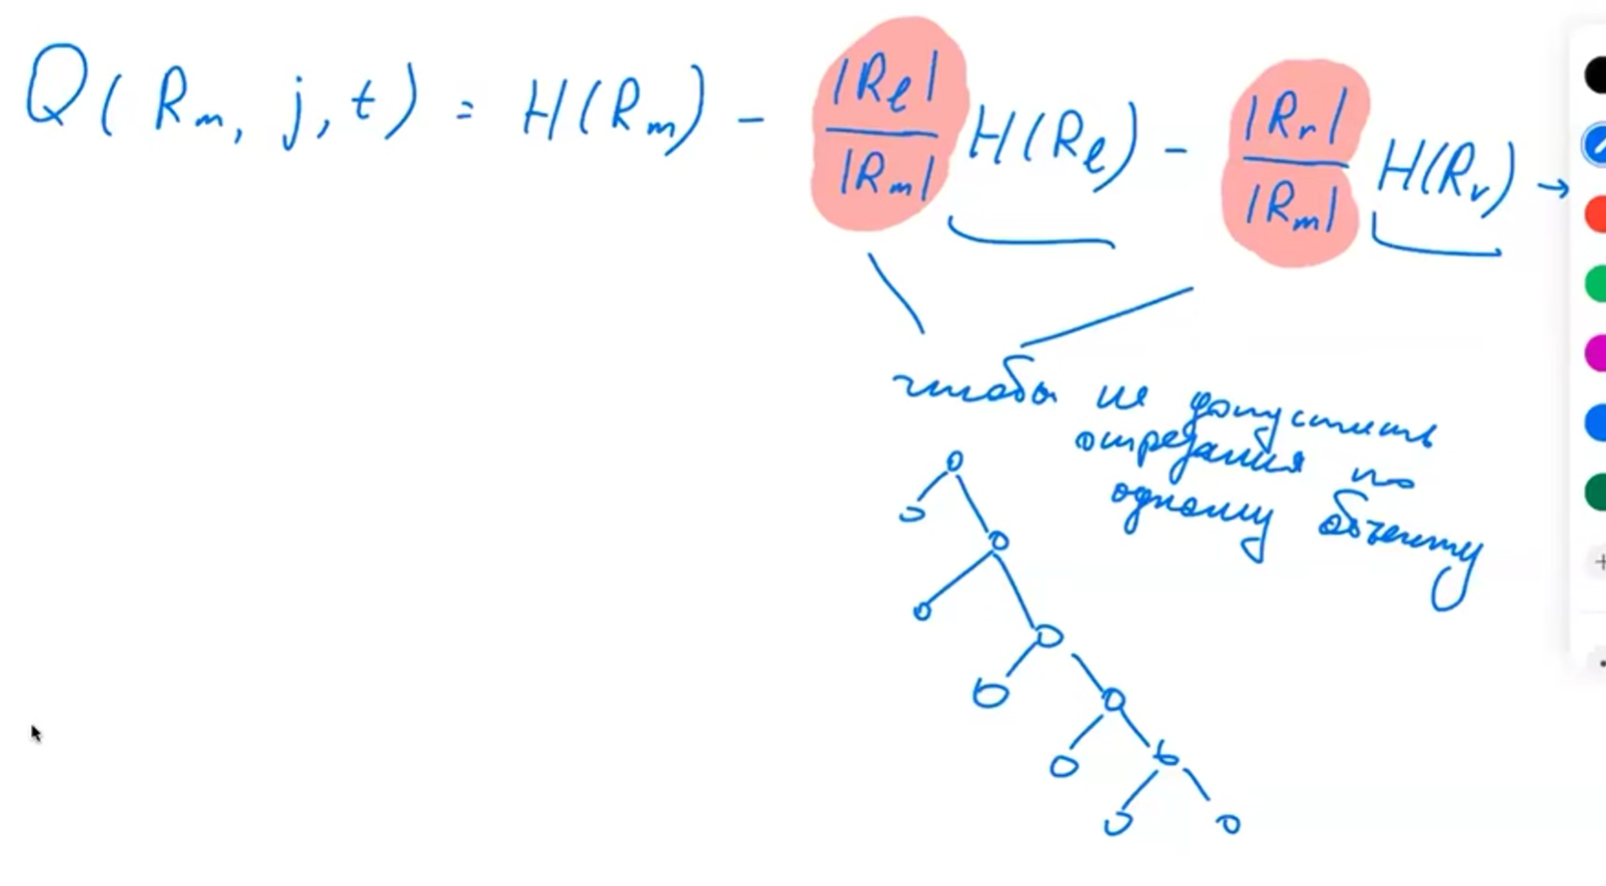 Q(Rm, j, t) = H(Rm) - |Rl|/|Rm| H(Rl) - |Rr|/|Rm| H(Rr) →
чтобы не допустить
отрезания по
одному объекту